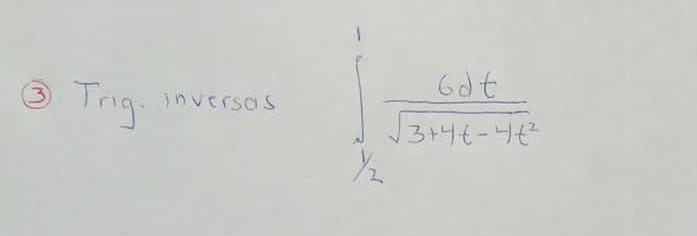 ③ Trig. inversas ∫_{1/2}^{1} 6dt / √(3+4t-4t²)